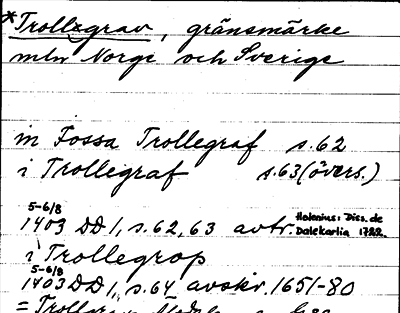 *Trollegrav, gränsmärke
mln Norge och Sverige
in Fossa Trollegraf s.62
i Trollegraf s.63 (övers.)
5-6/8
1403 DD 1, s.62, 63 avtr. Holenius: Diss. de
Dalekarlia 1722.
i Trollegrop
5-6/8
1403 DD 1, s.64 avskr. 1651-80
=